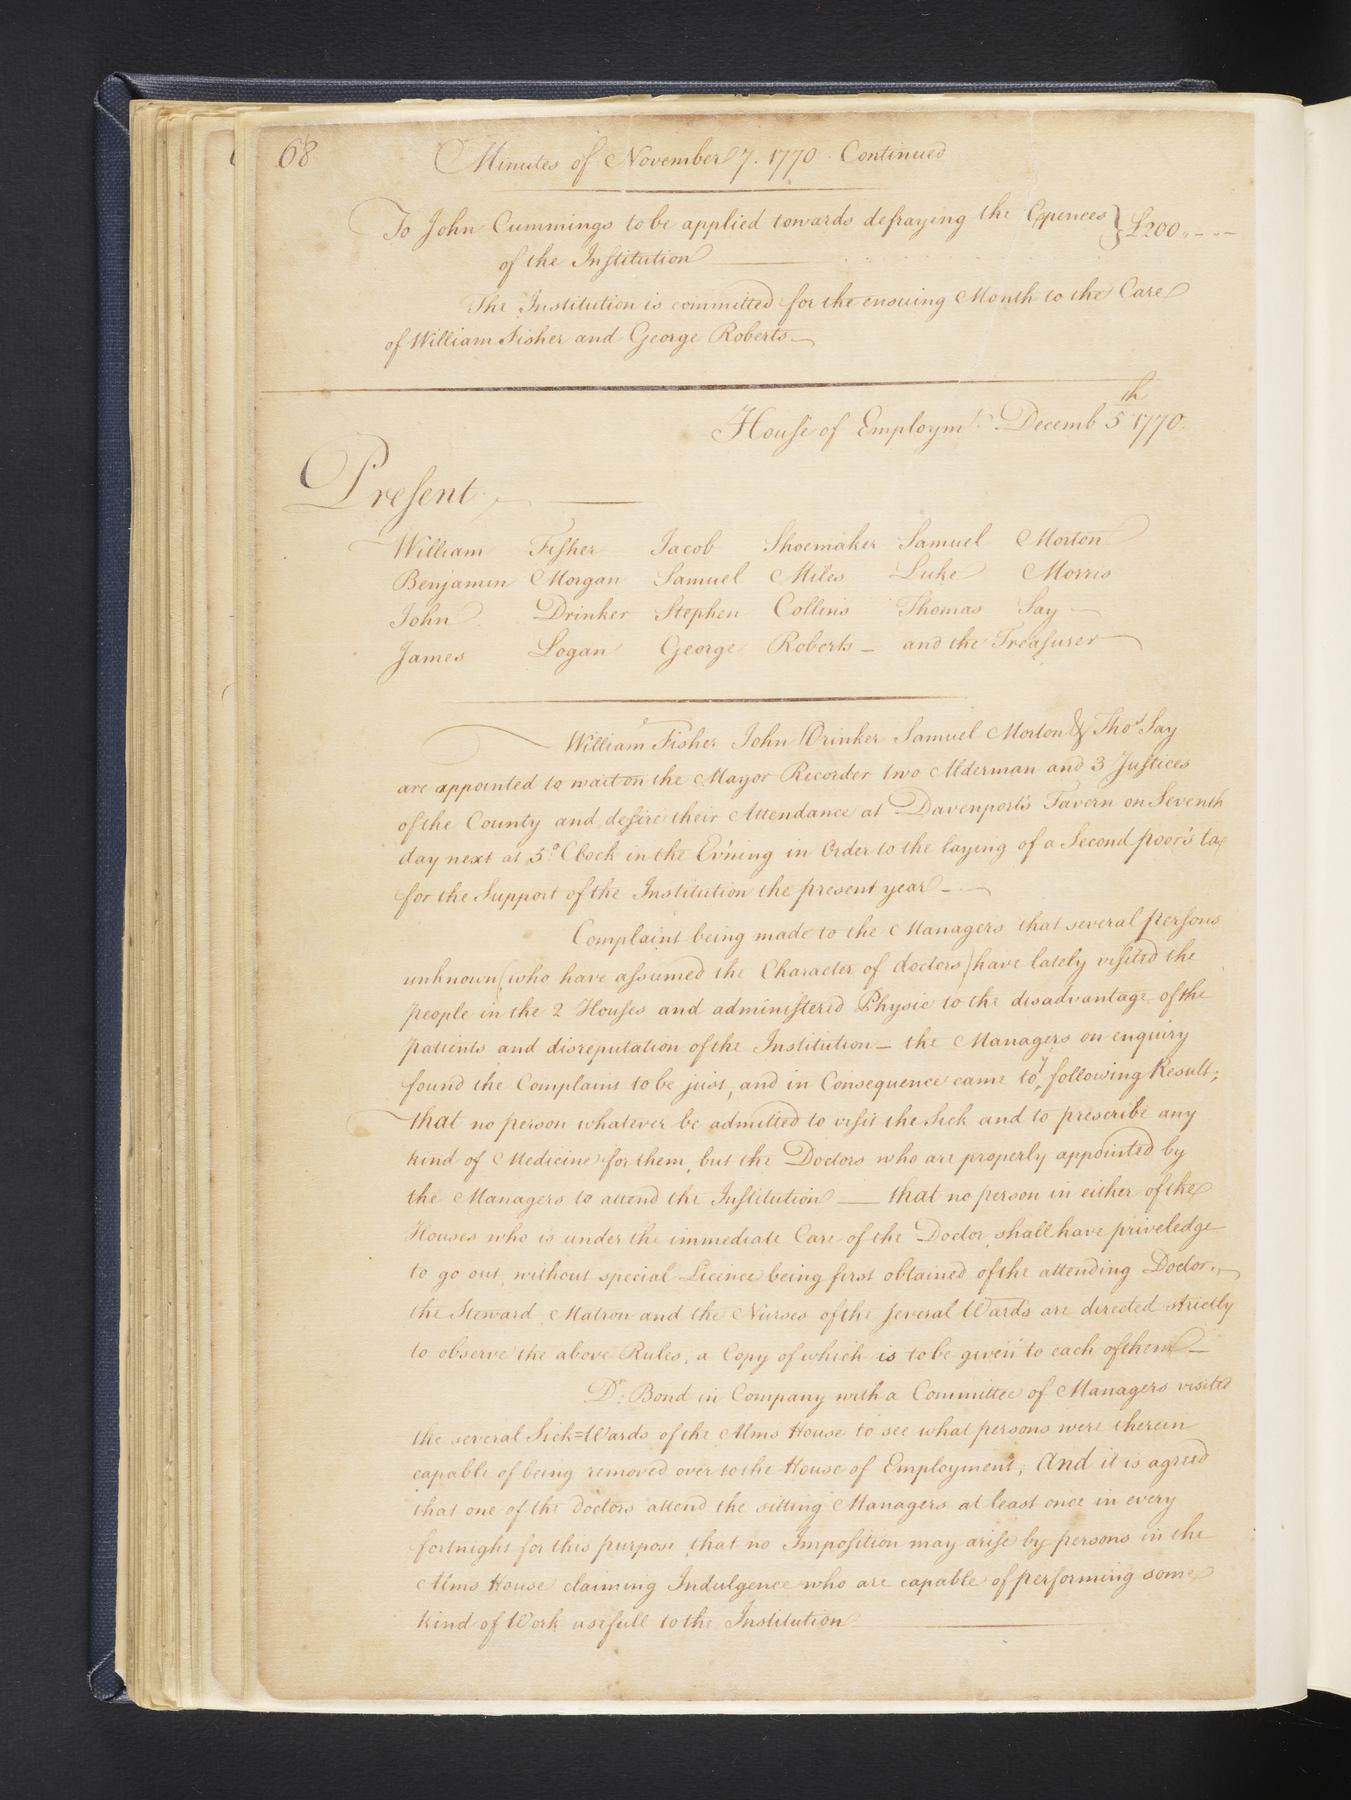 68
Minutes of November 7. 1770. Continued
To John Cummings to be applied towards defraying the Expences } £200,,-- --
of the Institution
The Institution is committed for the ensuing Month to the Care
of William Fisher and George Roberts
House of Employmt. Decemb 5th 1770.
Present
William Fisher Jacob Shoemaker Samuel Morton
Benjamin Morgan Samuel Miles Luke Morris
John Drinker Stephen Collins Thomas Say
James Logan George Roberts and the Treasurer
William Fisher John Drinker Samuel Morton & Thos. Say
are appointed to wait on the Mayor Recorder two Alderman and 3 Justices
of the County and desire their Attendance at Davenport's Tavern on Seventh
day next at 5 o Clock in the Ev'ning in Order to the laying of a Second poor's tax
for the Support of the Institution the present year
Complaint being made to the Managers that several persons
unknown (who have assumed the Character of doctors) have lately visited the
people in the 2 Houses and administered Physic to the disadvantage of the
patients and disreputation of the Institution — the Managers on enquiry
found the Complaint to be just, and in Consequence came to ye following Result;
that no person whatever be admitted to visit the Sick and to prescribe any
kind of Medicine for them, but the Doctors who are properly appointed by
the Managers to attend the Institution — that no person in either of the
Houses who is under the immediate Care of the Doctor, shall have priveledge
to go out, without special Licence being first obtained of the attending Doctor.
the Steward, Matron and the Nurses of the several Wards are directed strictly
to observe the above Rules, a Copy of which is to be given to each of them
Dr. Bond in Company with a Committee of Managers visited
the several Sick=Wards of the Alms House to see what persons were therein
capable of being removed over to the House of Employment; And it is agreed
that one of the doctors attend the sitting Managers at least once in every
fortnight for this purpose, that no Imposition may arise by persons in the
Alms House claiming Indulgence who are capable of performing some
kind of Work usefull to the Institution